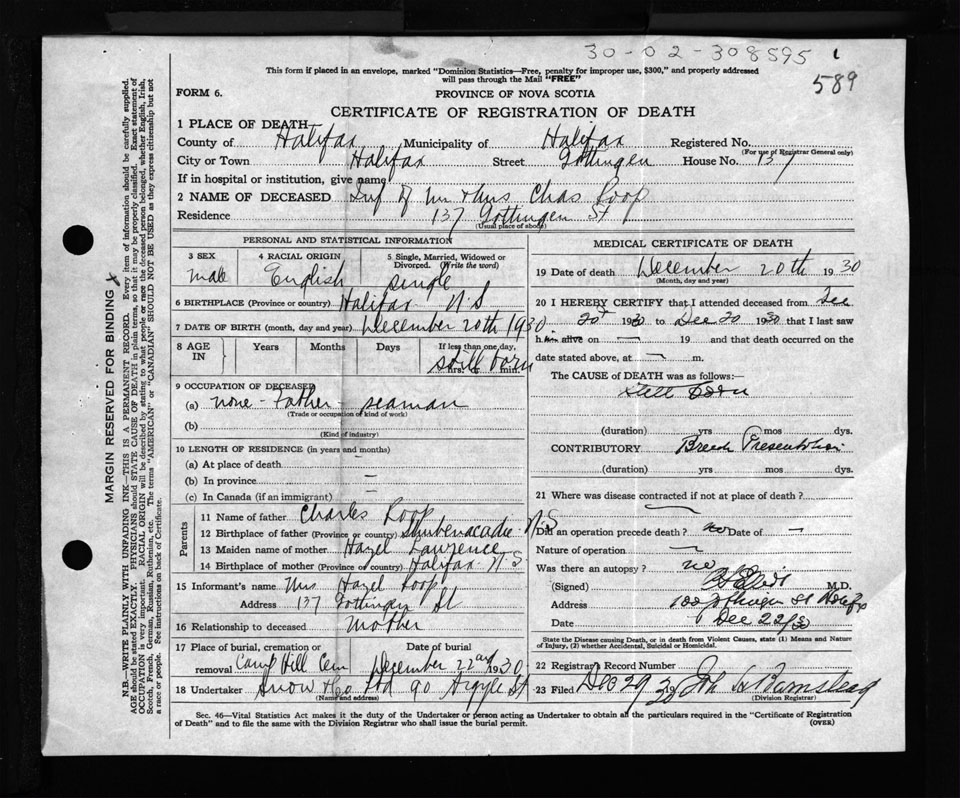 30-02-308595 1
589
This form if placed in an envelope, marked "Dominion Statistics—Free, penalty for improper use, $300," and properly addressed
will pass through the Mail "FREE"
FORM 6. PROVINCE OF NOVA SCOTIA
CERTIFICATE OF REGISTRATION OF DEATH
1 PLACE OF DEATH
County of Halifax Municipality of Halifax Registered No.
(For use of Registrar General only)
City or Town Halifax Street Gottingen House No. 137
If in hospital or institution, give name
2 NAME OF DECEASED Inf of Mr & Mrs Chas Roop
Residence 137 Gottingen St
(Usual place of abode)
PERSONAL AND STATISTICAL INFORMATION
3 SEX 4 RACIAL ORIGIN 5 Single, Married, Widowed or
Divorced. (Write the word)
male English single
6 BIRTHPLACE (Province or country) Halifax N.S
7 DATE OF BIRTH (month, day and year) December 20th 1930
8 AGE IN Years Months Days If less than one day,
hrs. or min.
still born
9 OCCUPATION OF DECEASED
(a) none - Father - seaman
(Trade or occupation of kind of work)
(b)
(Kind of industry)
10 LENGTH OF RESIDENCE (in years and months)
(a) At place of death
(b) In province —
(c) In Canada (if an immigrant) —
Parents
11 Name of father Charles Roop
12 Birthplace of father (Province or country) Shubenacadie N.S
13 Maiden name of mother Hazel Lawrence
14 Birthplace of mother (Province or country) Halifax N.S
15 Informant's name Mrs Hazel Roop
Address 137 Gottingen St
16 Relationship to deceased mother
17 Place of burial, cremation or removal Camp Hill Cem Date of burial December 22nd 1930
18 Undertaker Snow & Co Ltd 90 Argyle St
(Name and address)
MEDICAL CERTIFICATE OF DEATH
19 Date of death December 20th 1930
(Month, day and year)
20 I HEREBY CERTIFY that I attended deceased from Dec
20 1930 to Dec 20 1930 that I last saw
h alive on — 19 and that death occurred on the
date stated above, at — m.
The CAUSE of DEATH was as follows:
Still born
(duration) yrs mos dys.
CONTRIBUTORY Breech Presentation
(duration) yrs mos dys.
21 Where was disease contracted if not at place of death?
Did an operation precede death? no Date of —
Nature of operation —
Was there an autopsy? no
(Signed) M.D.
Address 100 Gottingen St Halifax
Date Dec 22/30
State the Disease causing Death, or in death from Violent Causes, state (1) Means and Nature
of Injury, (2) whether Accidental, Suicidal or Homicidal.
22 Registrar's Record Number
23 Filed Dec 29 1930 Barnstead
(Division Registrar)
Sec. 46—Vital Statistics Act makes it the duty of the Undertaker or person acting as Undertaker to obtain all the particulars required in the "Certificate of Registration
of Death" and to file the same with the Division Registrar who shall issue the burial permit. (OVER)
MARGIN RESERVED FOR BINDING
N.B.—WRITE PLAINLY WITH UNFADING INK—THIS IS A PERMANENT RECORD. Every item of information should be carefully supplied.
AGE should be stated EXACTLY. PHYSICIANS should STATE CAUSE OF DEATH in plain terms, so that it may be properly classified. Exact statement of
OCCUPATION is very important. RACIAL ORIGIN will be described by stating to what people or race the deceased person belonged, whether English, Irish,
Scotch, French, German, Russian, Ruthenian, etc. The terms "AMERICAN" or "CANADIAN" SHOULD NOT BE USED as they express citizenship but not
a race or people. See instructions on back of Certificate.